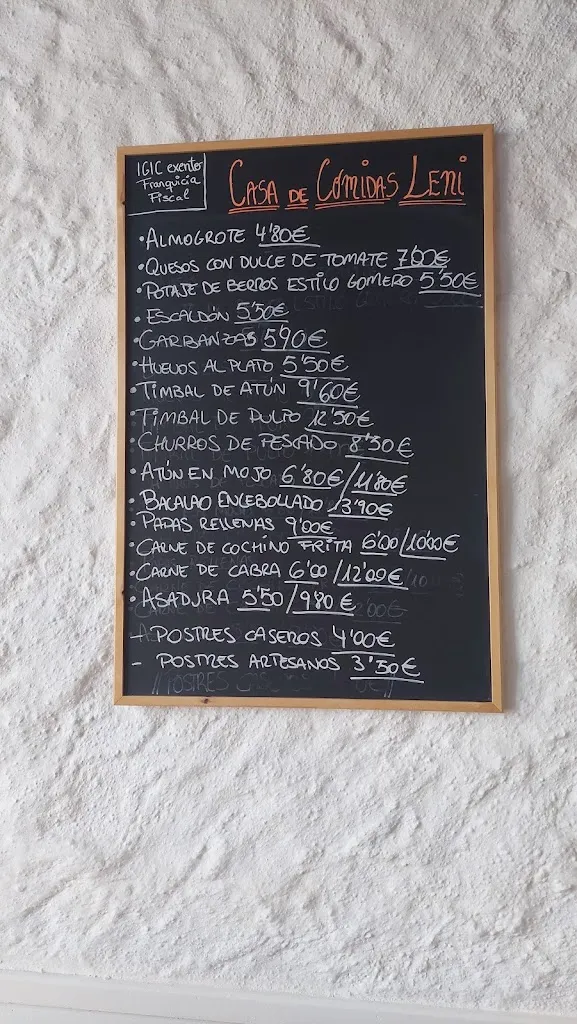 IGIC exento
Franquicia
Fiscal
CASA DE COMIDAS LENI
• ALMOGROTE 4'80€
• QUESOS CON DULCE DE TOMATE 7'00€
• POTAJE DE BERROS ESTILO GOMERO 5'50€
• ESCALDÓN 5'50€
• GARBANZAS 5'90€
• HUEVOS AL PLATO 5'50€
• TIMBAL DE ATÚN 9'60€
• TIMBAL DE PULPO 12'50€
• CHURROS DE PESCADO 8'50€
• ATÚN EN MOJO 6'80€/11'80€
• BACALAO ENCEBOLLADO 13'90€
• PAPAS RELLENAS 9'00€
• CARNE DE COCHINO FRITA 6'00/10'00€
• CARNE DE CABRA 6'00/12'00€
• ASADURA 5'50/9'80€
- POSTRES CASEROS 4'00€
- POSTRES ARTESANOS 3'50€